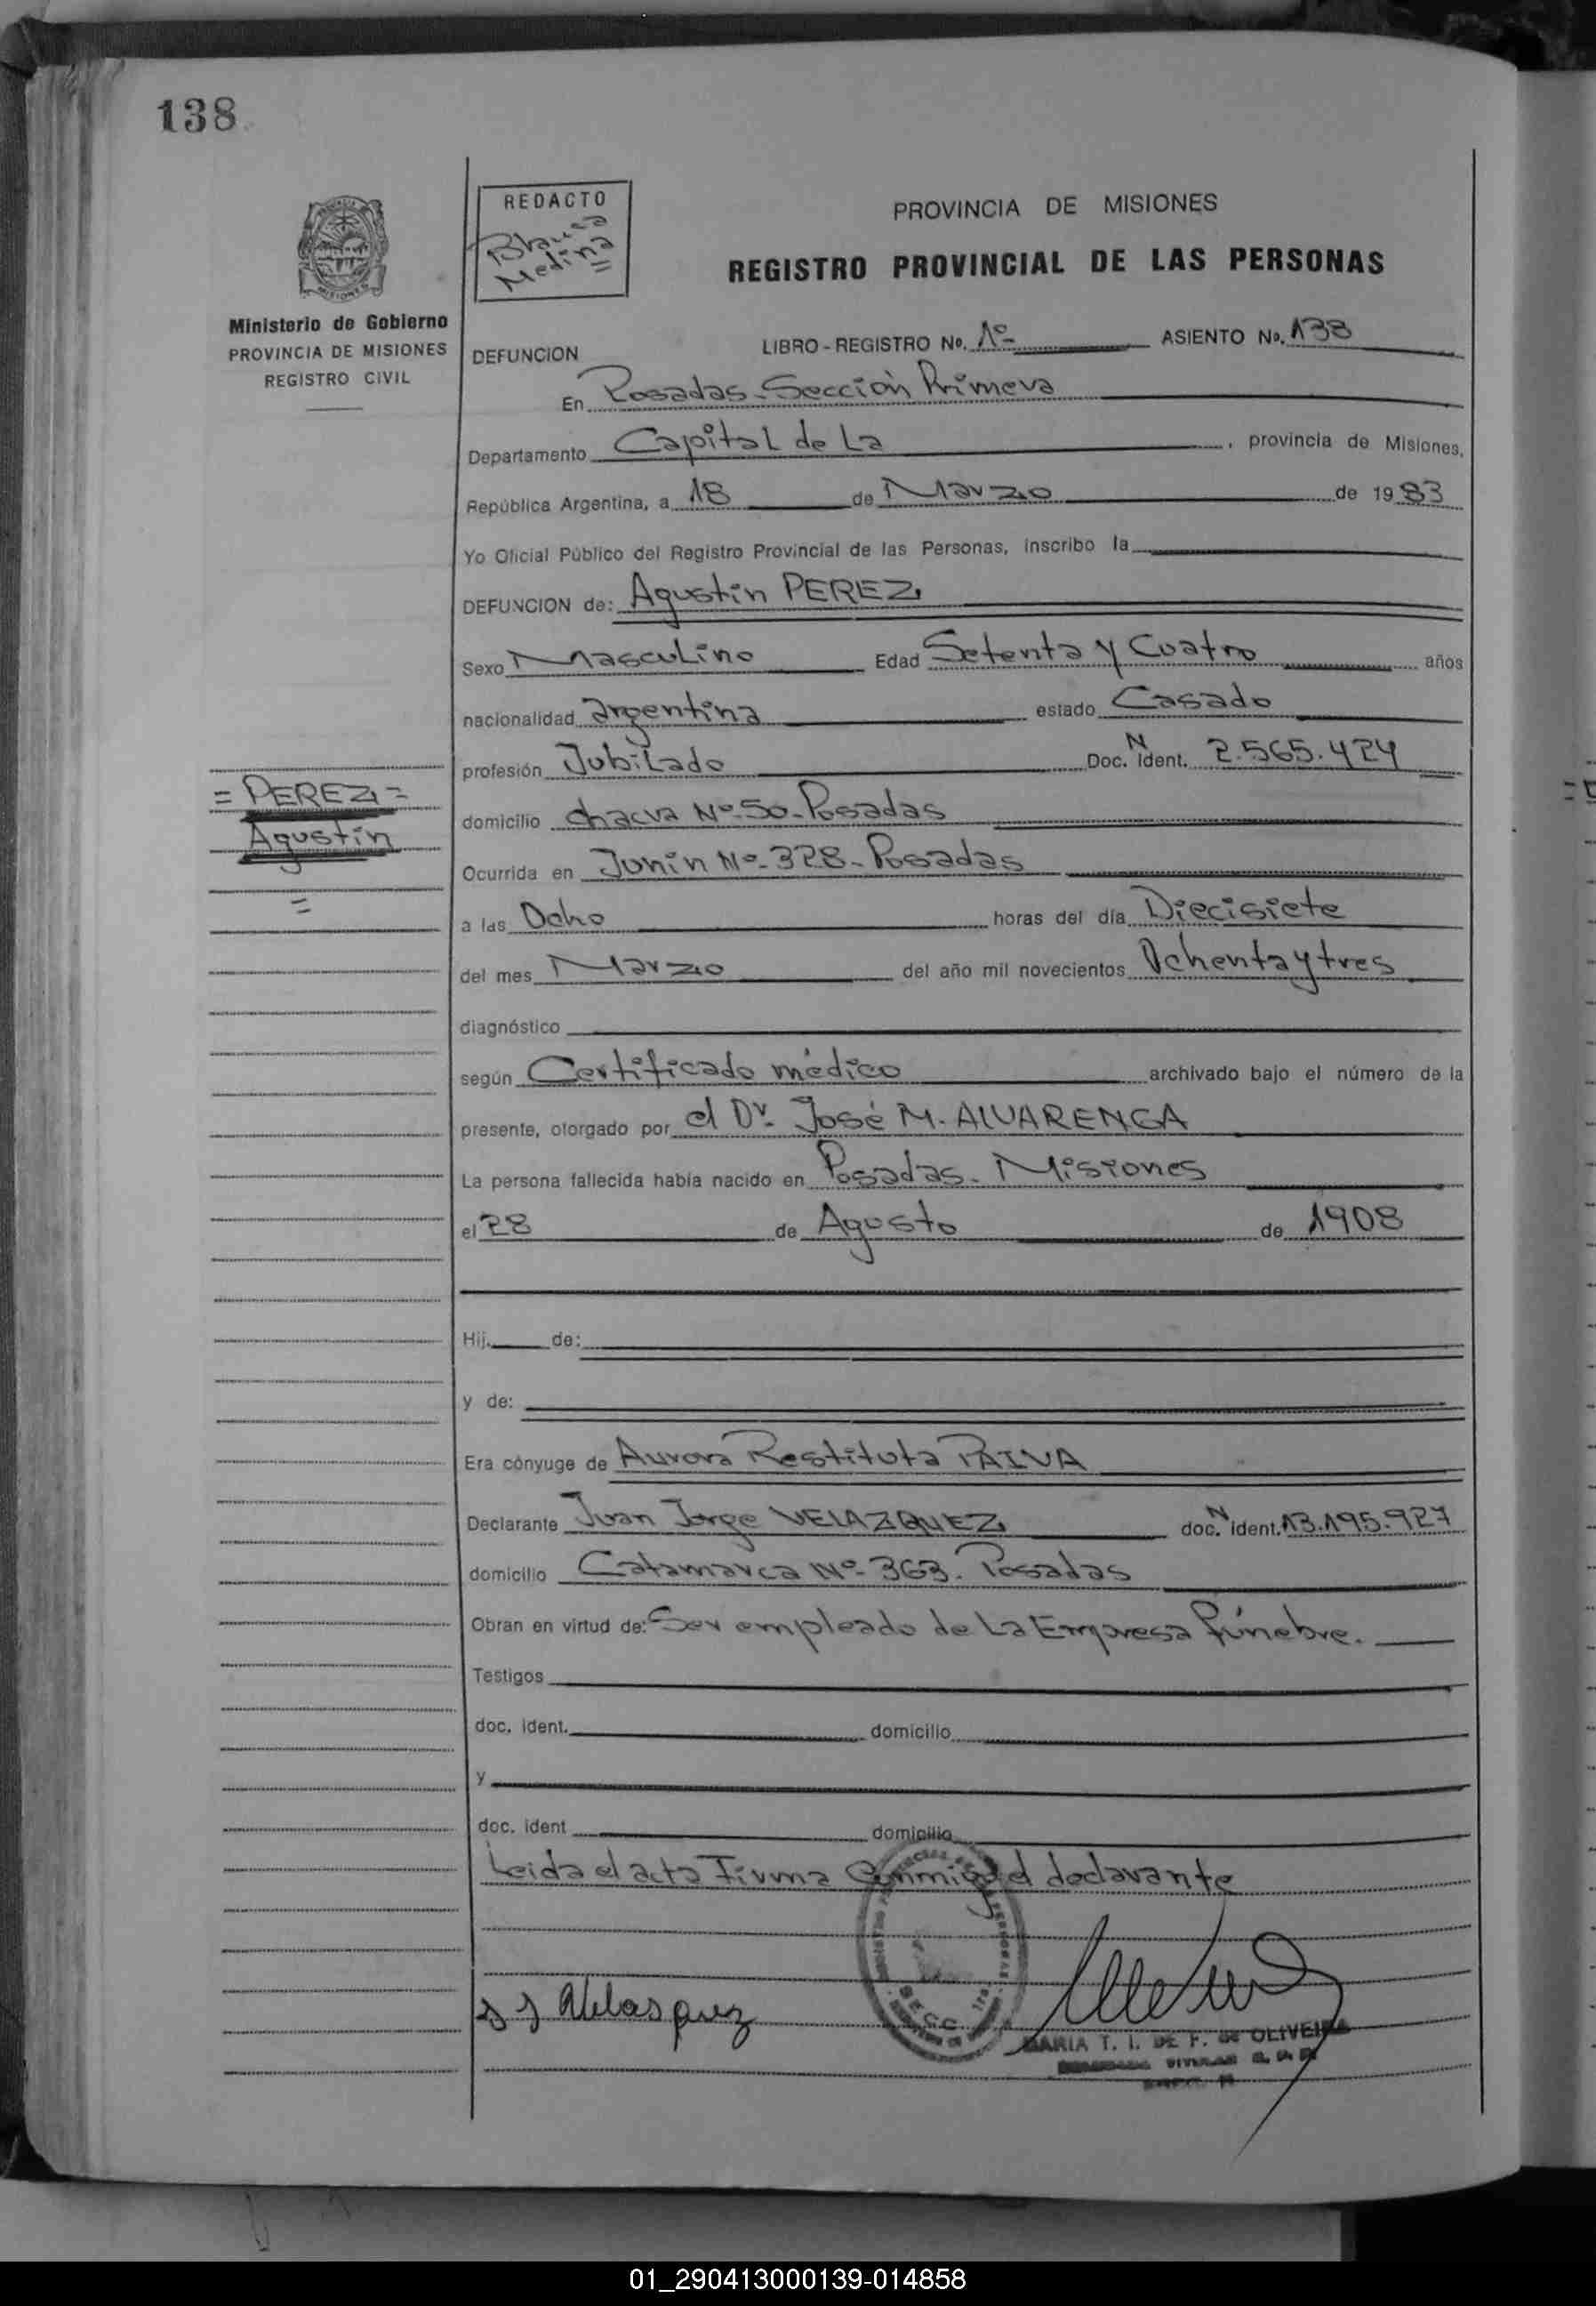 138
REDACTO
Blanca
Medina
PROVINCIA DE MISIONES
REGISTRO PROVINCIAL DE LAS PERSONAS
Ministerio de Gobierno
PROVINCIA DE MISIONES
REGISTRO CIVIL
DEFUNCION LIBRO-REGISTRO No. 1º- ASIENTO No. 138
En Posadas-Sección Primera
Departamento Capital de La , provincia de Misiones,
República Argentina, a 18 de Marzo de 1983
Yo Oficial Público del Registro Provincial de las Personas, inscribo la
DEFUNCION de: Agustín PEREZ
Sexo Masculino Edad Setenta y Cuatro años
nacionalidad argentina estado Casado
profesión Jubilado Doc. N Ident. 2.565.424
= PEREZ =
Agustín
=
domicilio chacra Nº-50-Posadas
Ocurrida en Junín Nº-328-Posadas
a las Ocho horas del día Diecisiete
del mes Marzo del año mil novecientos Ochenta y tres
diagnóstico
según Certificado médico archivado bajo el número de la
presente, otorgado por el Dr. José M. ALVARENGA
La persona fallecida había nacido en Posadas-Misiones
el 28 de Agosto de 1908
Hij de:
y de:
Era cónyuge de Aurora Restituta PAIVA
Declarante Juan Jorge VELAZQUEZ doc. N ident. 13.195.927
domicilio Catamarca Nº-363. Posadas
Obran en virtud de: Ser empleado de La Empresa Fúnebre.
Testigos
doc. ident. domicilio
y
doc. ident domicilio
Leida el acta Firma Conmigo el declarante
J J Velasquez
MARIA T. I. DE F. de OLIVEIRA
01_290413000139-014858